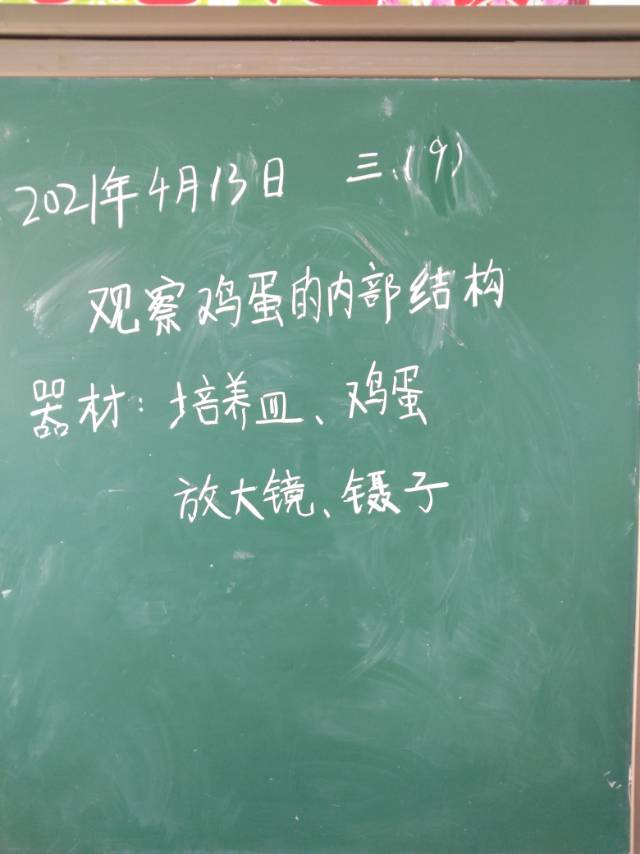 2021年4月13日 三.(9)
观察鸡蛋的内部结构
器材：培养皿、鸡蛋
放大镜、镊子